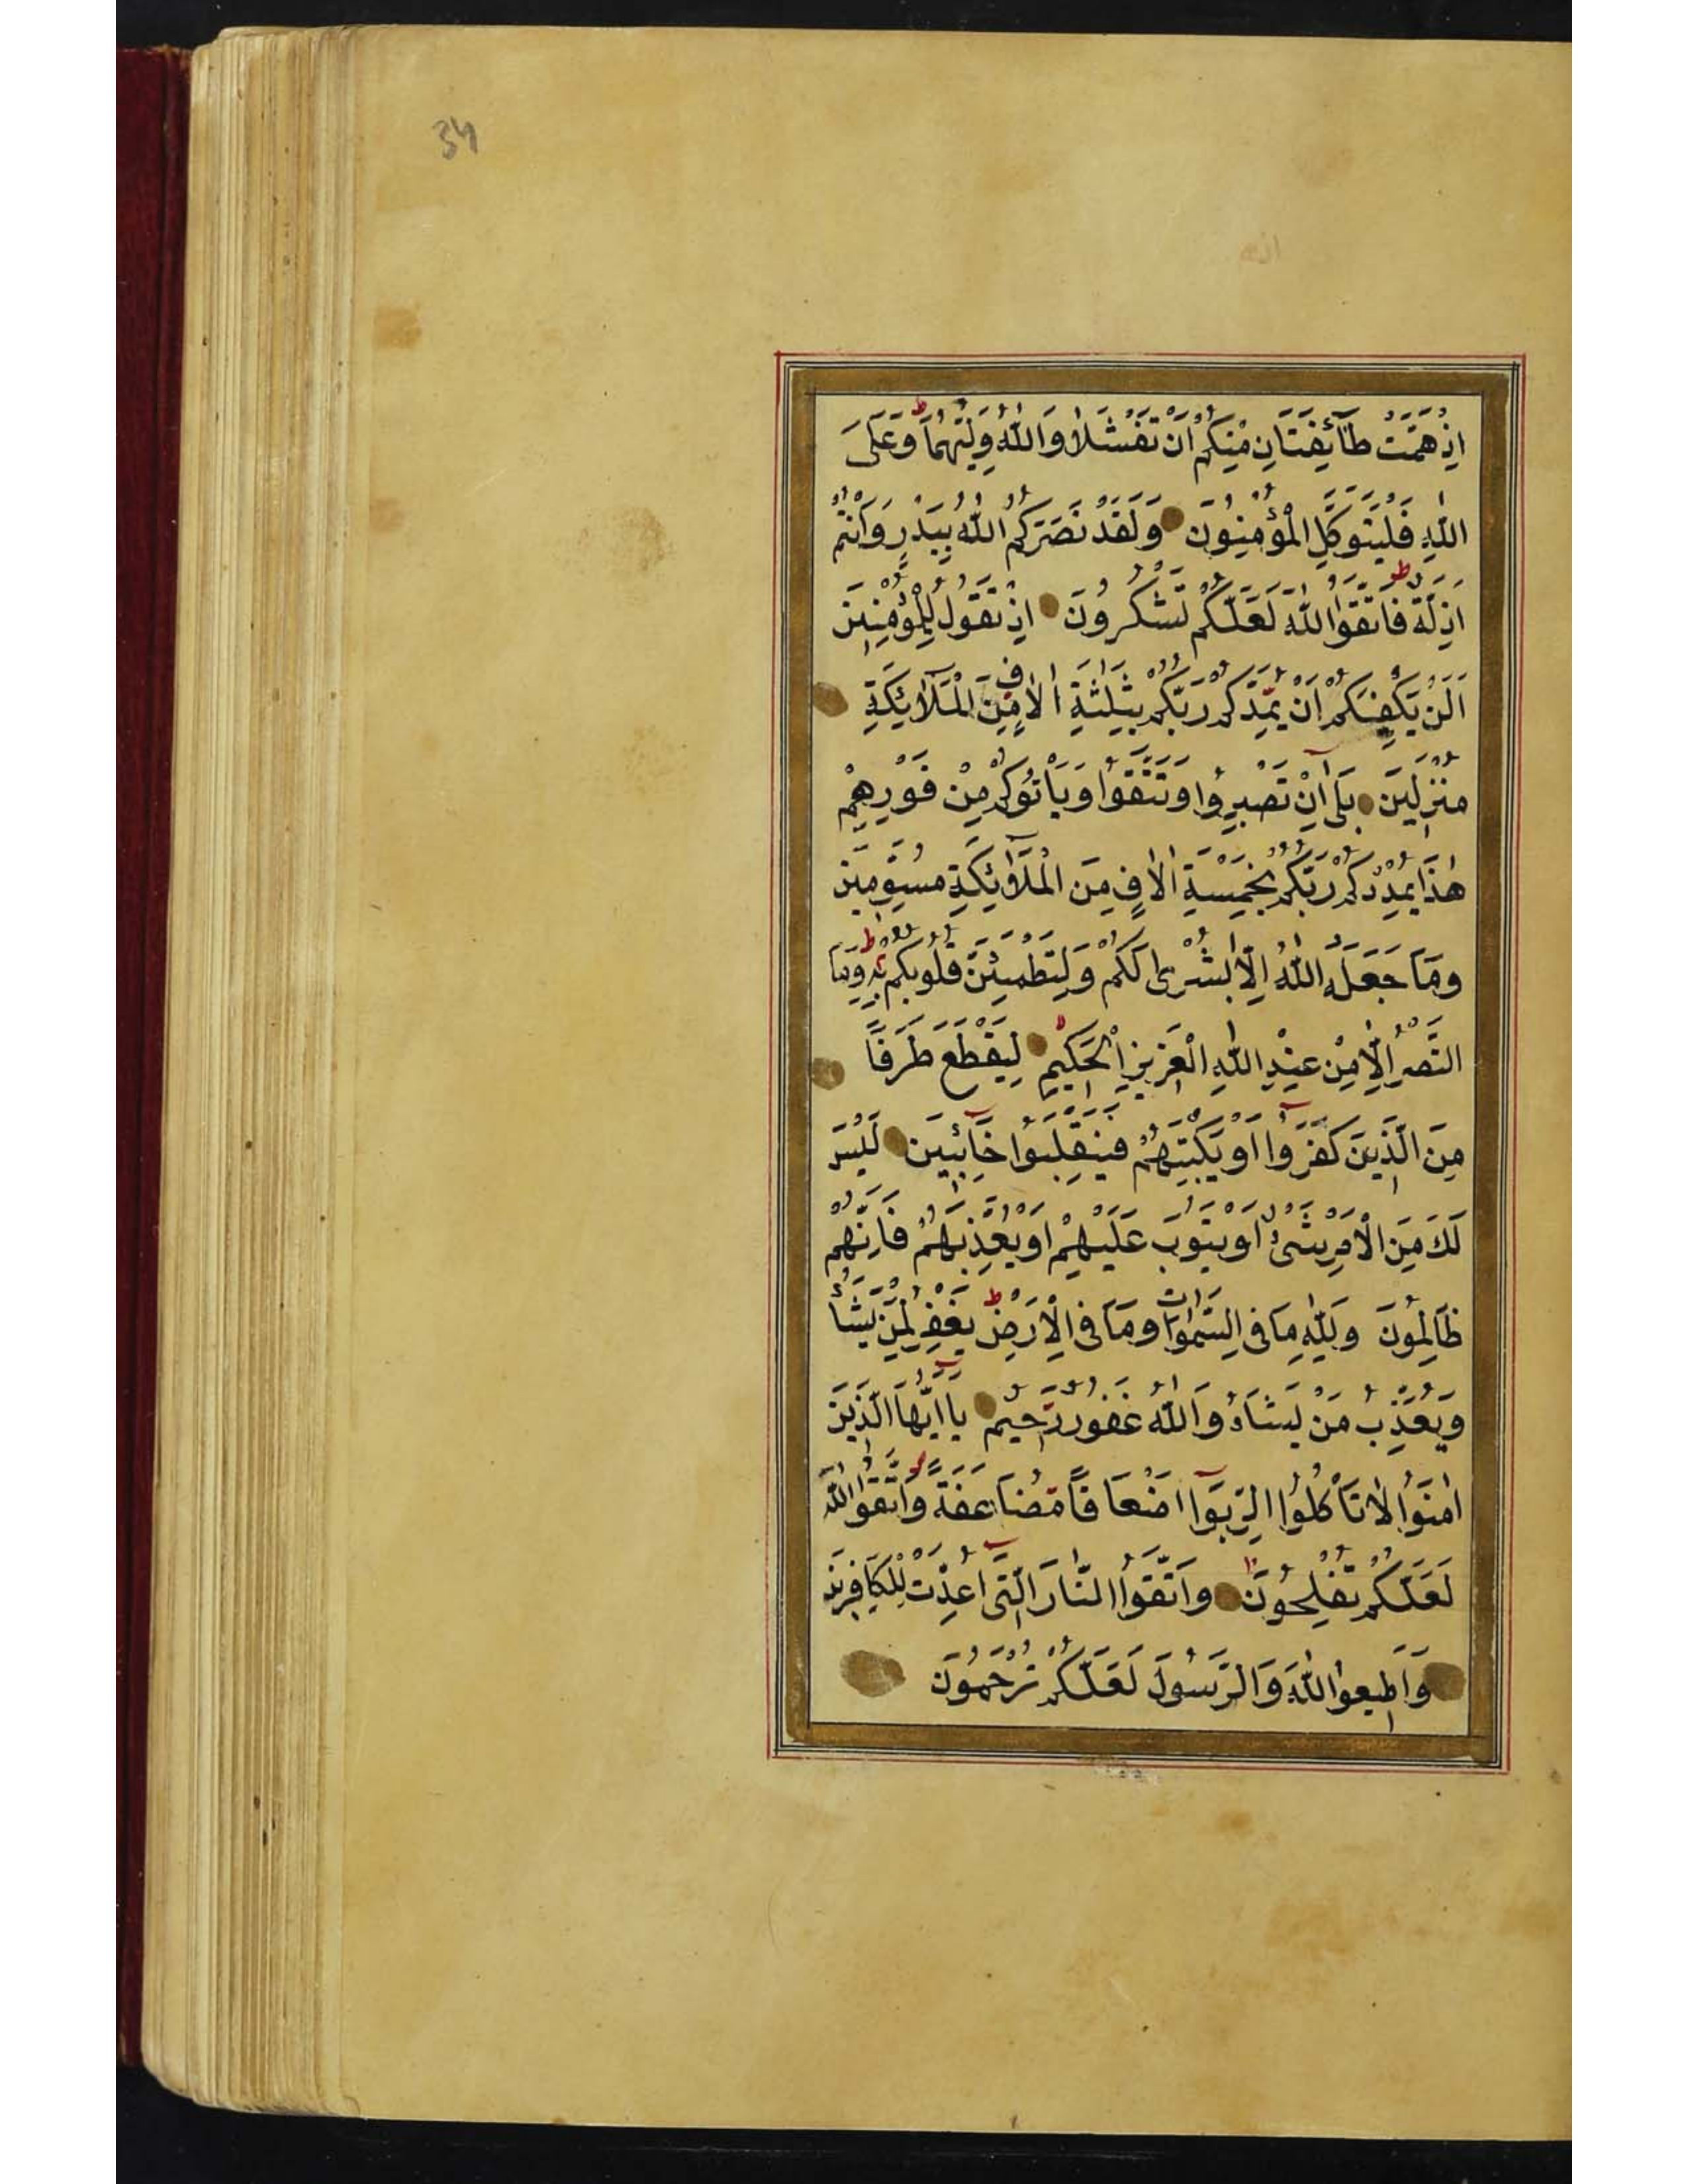 34
اِذْ هَمَّتْ طَآئِفَتَانِ مِنْكُمْ اَنْ تَفْشَلَا وَاللّٰهُ وَلِيُّهُمَا ط وَعَلَى
اللّٰهِ فَلْيَتَوَكَّلِ الْمُؤْمِنُونَ وَلَقَدْ نَصَرَكُمُ اللّٰهُ بِبَدْرٍ وَاَنْتُمْ
اَذِلَّةٌ ط فَاتَّقُوا اللّٰهَ لَعَلَّكُمْ تَشْكُرُونَ اِذْ تَقُولُ لِلْمُؤْمِنِينَ
اَلَنْ يَكْفِيَكُمْ اَنْ يُمِدَّكُمْ رَبُّكُمْ بِثَلٰثَةِ اٰلَافٍ مِنَ الْمَلَآئِكَةِ
مُنْزَلِينَ بَلٰى اِنْ تَصْبِرُوا وَتَتَّقُوا وَيَاْتُوكُمْ مِنْ فَوْرِهِمْ
هٰذَا يُمْدِدْكُمْ رَبُّكُمْ بِخَمْسَةِ اٰلَافٍ مِنَ الْمَلَآئِكَةِ مُسَوِّمِينَ
وَمَا جَعَلَهُ اللّٰهُ اِلَّا بُشْرٰى لَكُمْ وَلِتَطْمَئِنَّ قُلُوبُكُمْ بِهِ ط وَمَا
النَّصْرُ اِلَّا مِنْ عِنْدِ اللّٰهِ الْعَزِيزِ الْحَكِيمِ لا لِيَقْطَعَ طَرَفًا
مِنَ الَّذِينَ كَفَرُوا اَوْ يَكْبِتَهُمْ فَيَنْقَلِبُوا خَآئِبِينَ لَيْسَ
لَكَ مِنَ الْاَمْرِ شَىْءٌ اَوْ يَتُوبَ عَلَيْهِمْ اَوْ يُعَذِّبَهُمْ فَاِنَّهُمْ
ظَالِمُونَ وَلِلّٰهِ مَا فِى السَّمٰوَاتِ وَمَا فِى الْاَرْضِ ط يَغْفِرُ لِمَنْ يَشَآءُ
وَيُعَذِّبُ مَنْ يَشَآءُ وَاللّٰهُ غَفُورٌ رَحِيمٌ يَا اَيُّهَا الَّذِينَ
اٰمَنُوا لَا تَاْكُلُوا الرِّبٰوا اَضْعَافًا مُضَاعَفَةً وَاتَّقُوا اللّٰهَ
لَعَلَّكُمْ تُفْلِحُونَ وَاتَّقُوا النَّارَ الَّتِى اُعِدَّتْ لِلْكَافِرِينَ
وَاَطِيعُوا اللّٰهَ وَالرَّسُولَ لَعَلَّكُمْ تُرْحَمُونَ